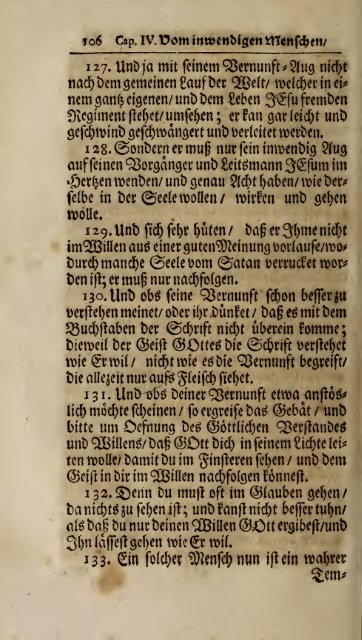 106 Cap. IV. Vom inwendigen Menschen/
127. Und ja mit seinem Vernunft-Aug nicht
nach dem gemeinen Lauf der Welt/ welcher in ei-
nem gantz eigenen/ und dem Leben JEsu fremden
Regiment stehet/ umsehen; er kan gar leicht und
geschwind geschwängert und verleitet werden.
128. Sondern er muß nur sein inwendig Aug
auf seinen Vorgänger und Leitsmann JEsum im
Hertzen wenden/ und genau Acht haben/ wie der-
selbe in der Seele wollen/ wirken und gehen
wolle.
129. Und sich sehr hüten/ daß er Ihme nicht
im Willen aus einer guten Meinung vorlaufe/ wo-
durch manche Seele vom Satan verrucket wor-
den ist; er muß nur nachfolgen.
130. Und obs seine Vernunft schon besser zu
verstehen meinet/ oder ihr dünket/ daß es mit dem
Buchstaben der Schrift nicht überein komme;
dieweil der Geist GOttes die Schrift verstehet
wie Er wil/ nicht wie es die Vernunft begreift/
die allezeit nur aufs Fleisch siehet.
131. Und obs deiner Vernunft etwa anstös-
lich möchte scheinen/ so ergreife das Gebät/ und
bitte um Oefnung des Göttlichen Verstandes
und Willens/ daß GOtt dich in seinem Lichte lei-
ten wolle/ damit du im Finsteren sehen/ und dem
Geist in dir im Willen nachfolgen könnest.
132. Denn du must oft im Glauben gehen/
da nichts zu sehen ist; und kanst nicht besser tuhn/
als daß du nur deinen Willen GOtt ergibest/ und
Ihn lässest gehen wie Er wil.
133. Ein solcher Mensch nun ist ein wahrer
Tem-